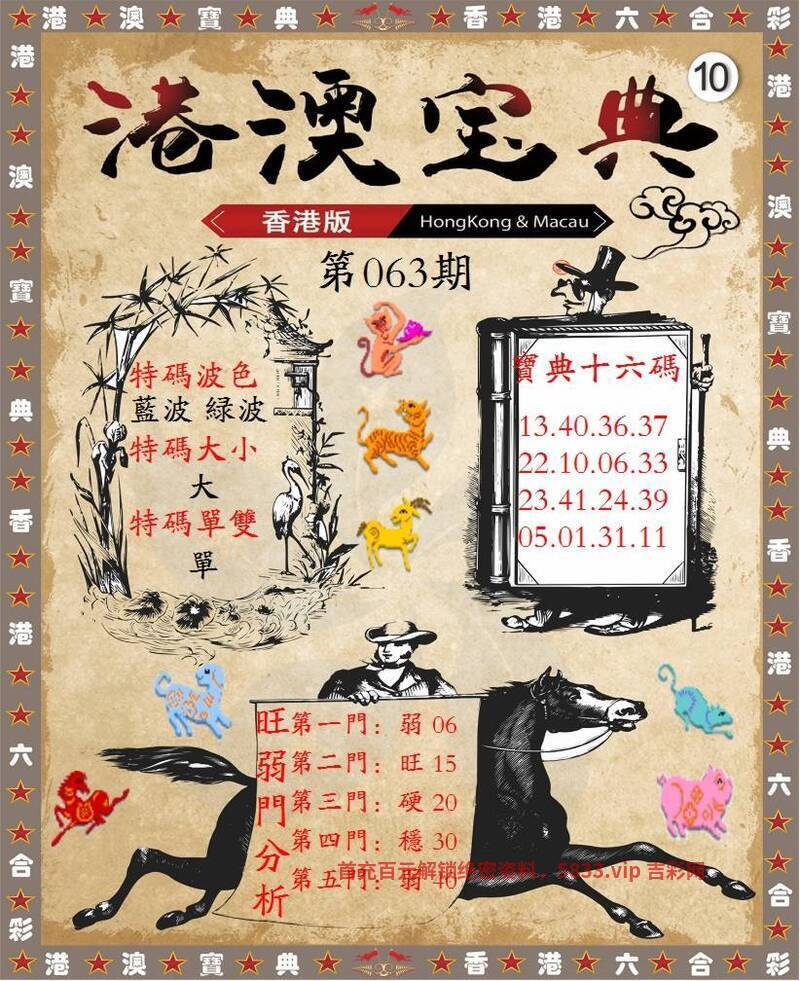 港澳寶典 香港六合彩
10
港澳宝典
香港版 HongKong & Macau
第063期
特碼波色
藍波 緑波
特碼大小
大
特碼單雙
單
寶典十六碼
13.40.36.37
22.10.06.33
23.41.24.39
05.01.31.11
旺弱門分析
第一門：弱 06
第二門：旺 15
第三門：硬 20
第四門：穩 30
第五門：弱 40
首充百元解锁绝密资料，5933.vip 吉彩网
港澳寶典香港六合彩
港澳寶典香港六合彩
港澳寶典 香港六合彩